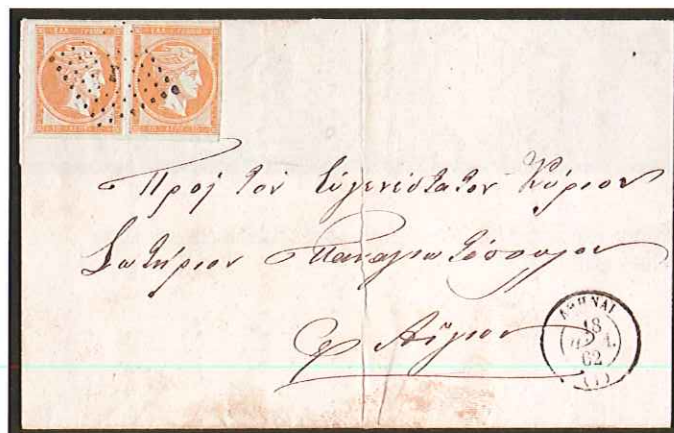 Πρὸς τὸν Εὐγενέστατον Κύριον
Σωτήριον Παναγιωτόπουλον
Αἴγιον
ΑΘΗΝΑΙ
18
62
(1)